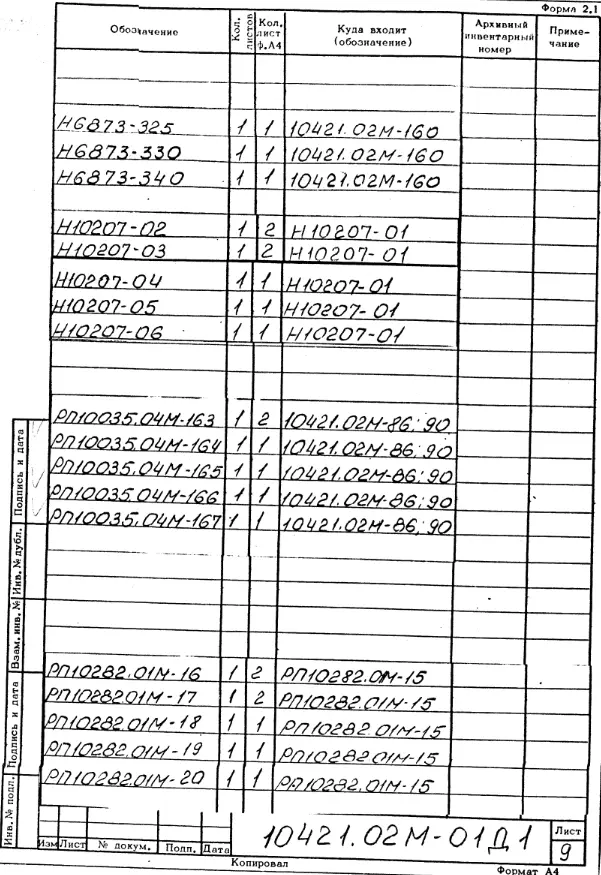 Форма 2.1
Обозначение Кол. листов Кол. лист ф.А4 Куда входит (обозначение) Архивный инвентарный номер Приме-чание
Н6873-325 1 1 10421.02М-160
Н6873-330 1 1 10421.02М-160
Н6873-340 1 1 10421.02М-160
Н10207-02 1 2 Н10207-01
Н10207-03 1 2 Н10207-01
Н10207-04 1 1 Н10207-01
Н10207-05 1 1 Н10207-01
Н10207-06 1 1 Н10207-01
РП10035.04М-163 1 2 10421.02М-86;90
РП10035.04М-164 1 1 10421.02М-86;90
РП10035.04М-165 1 1 10421.02М-86;90
РП10035.04М-166 1 1 10421.02М-86;90
РП10035.04М-167 1 1 10421.02М-86;90
РП10282.01М-16 1 2 РП10282.01М-15
РП10282.01М-17 1 2 РП10282.01М-15
РП10282.01М-18 1 1 РП10282.01М-15
РП10282.01М-19 1 1 РП10282.01М-15
РП10282.01М-20 1 1 РП10282.01М-15
Подпись и дата
Инв. № дубл.
Взам. инв. №
Подпись и дата
Инв. № подл.
10421.02М-01Д1
Лист
9
Изм Лист № докум. Подп. Дата
Копировал
Формат А4